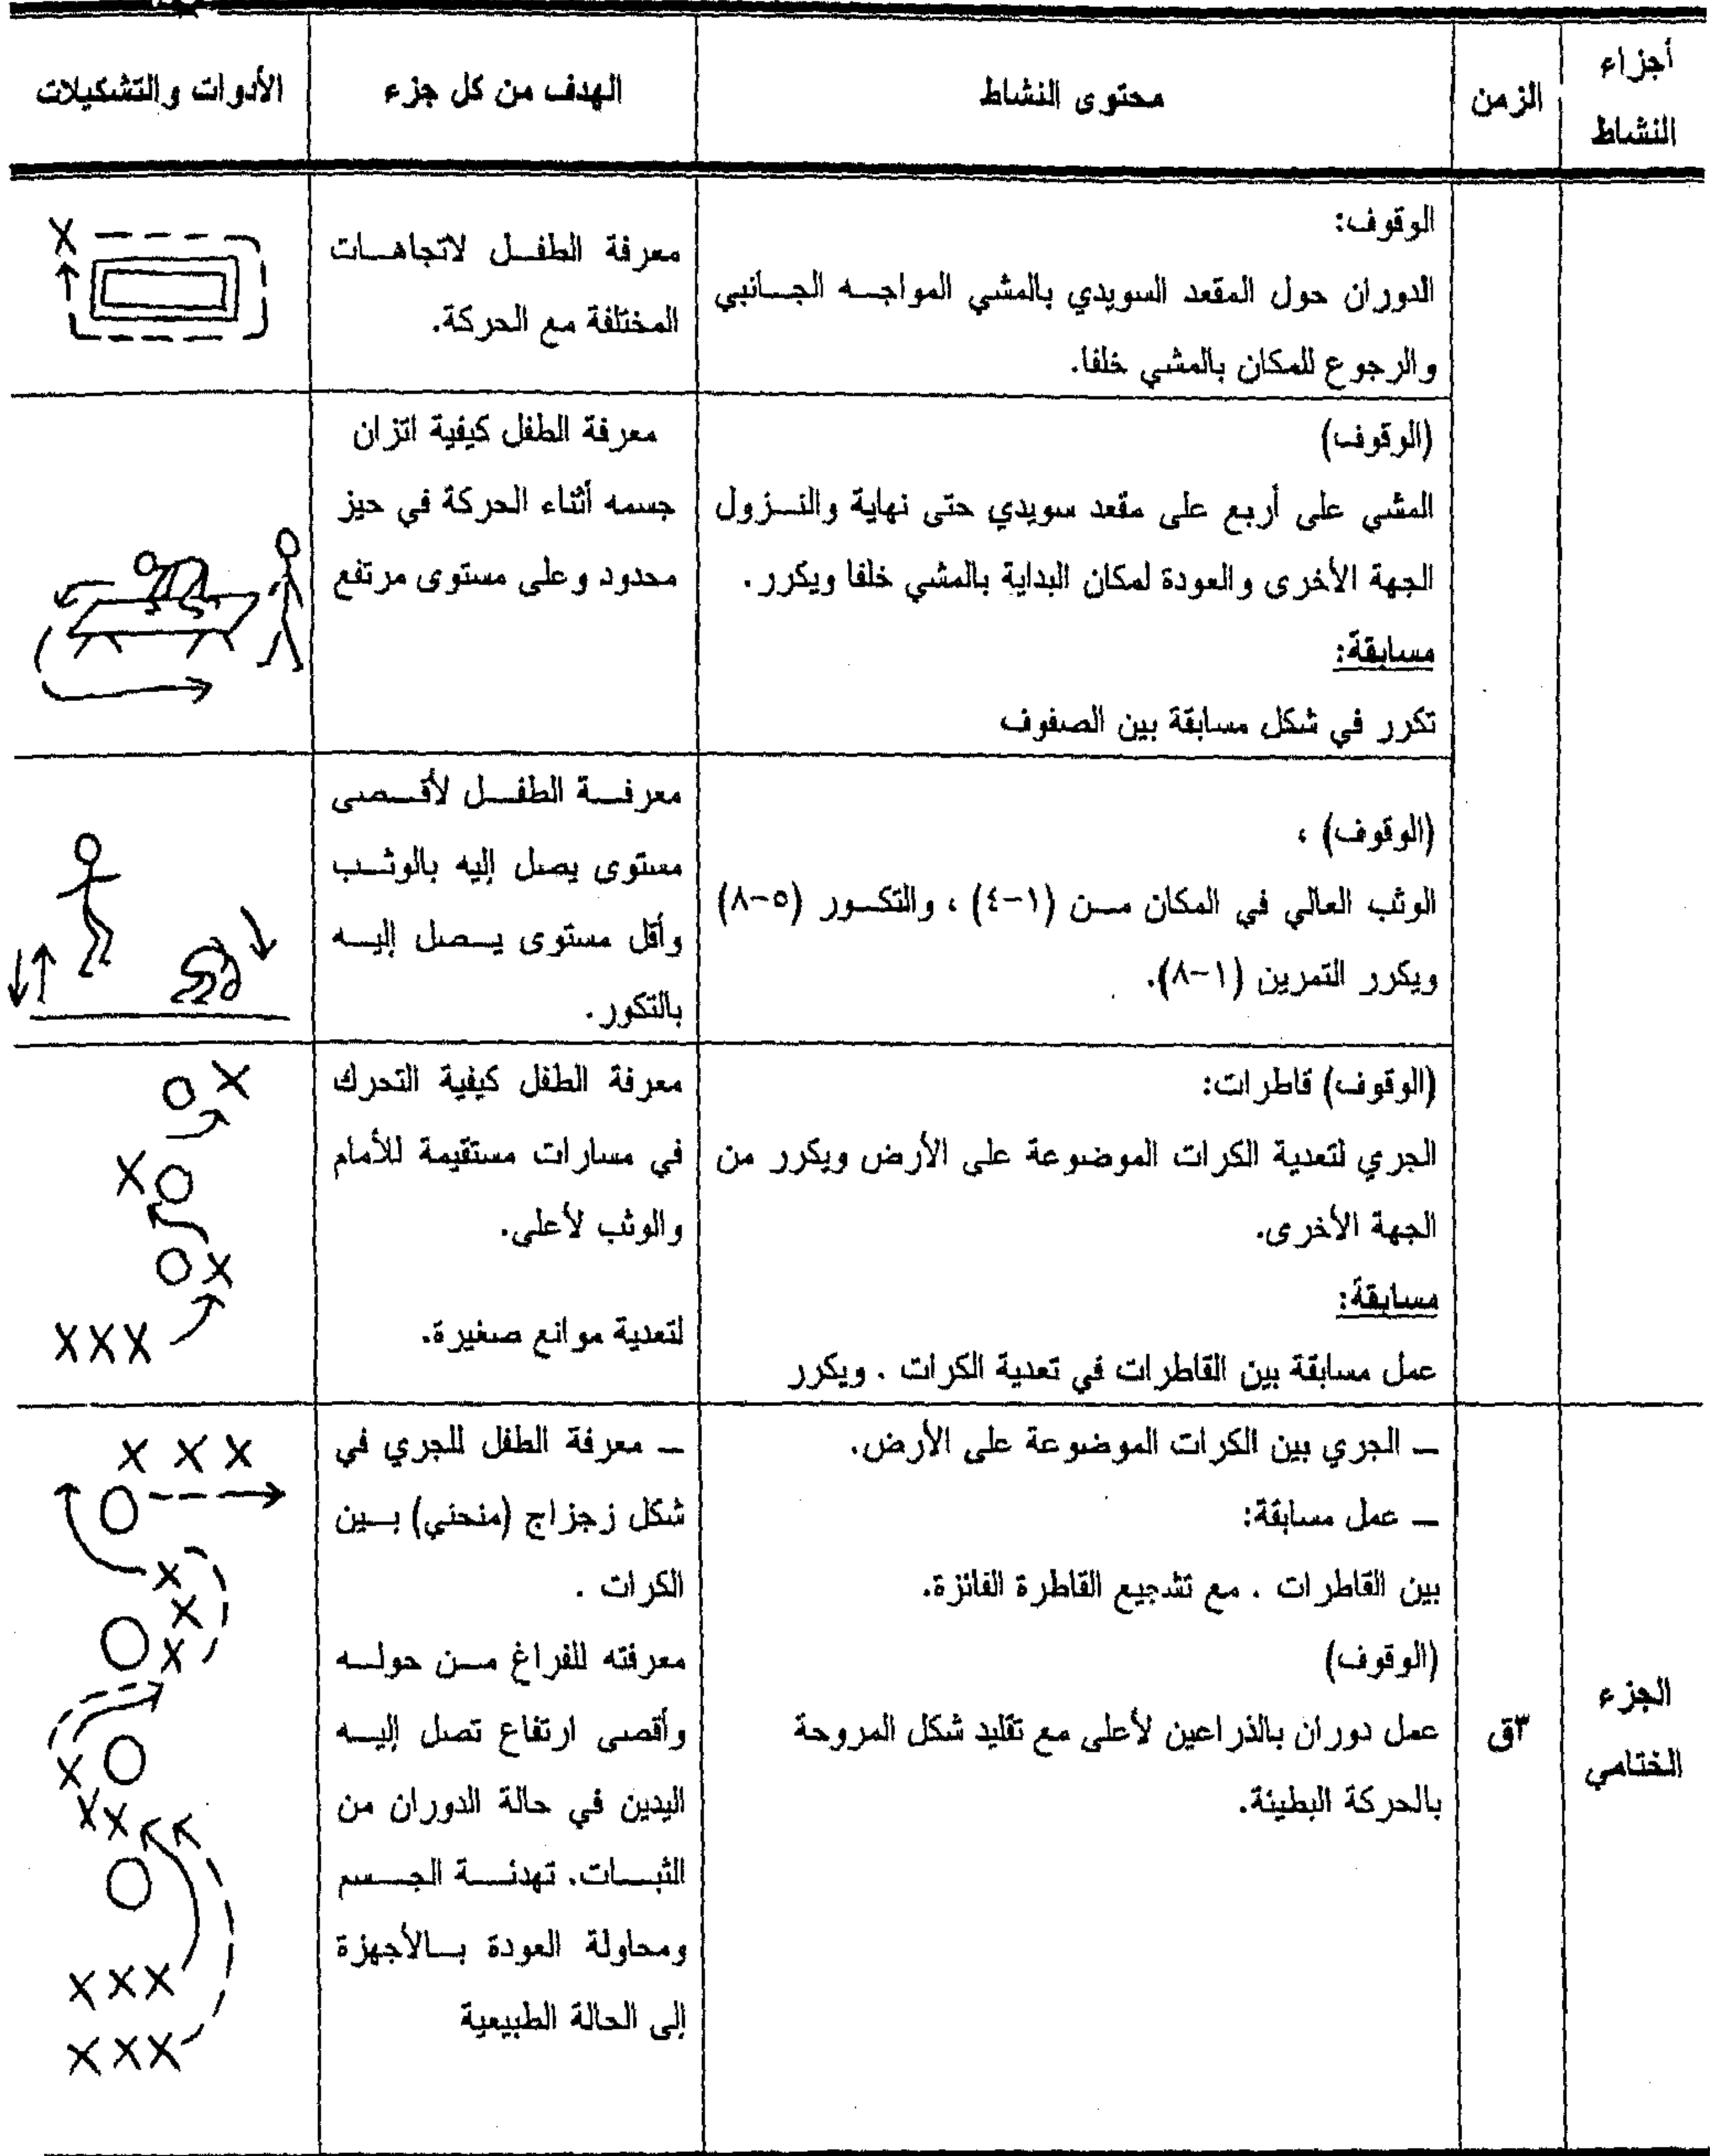 أجزاء
النشاط
الزمن
محتوى النشاط
الهدف من كل جزء
الأدوات والتشكيلات
الوقوف:
الدوران حول المقعد السويدي بالمشي المواجه الجانبي
والرجوع للمكان بالمشي خلفا.
معرفة الطفل لاتجاهات
المختلفة مع الحركة.
X
(الوقوف)
المشي على أربع على مقعد سويدي حتى نهاية والنزول
الجهة الأخرى والعودة لمكان البداية بالمشي خلفا ويكرر.
مسابقة:
تكرر في شكل مسابقة بين الصفوف
معرفة الطفل كيفية اتزان
جسمه أثناء الحركة في حيز
محدود وعلى مستوى مرتفع
(الوقوف) ،
الوثب العالي في المكان من (١-٤) ، والتكور (٥-٨)
ويكرر التمرين (١-٨).
معرفة الطفل لأقصى
مستوى يصل إليه بالوثب
وأقل مستوى يصل إليه
بالتكور.
(الوقوف) قاطرات:
الجري لتعدية الكرات الموضوعة على الأرض ويكرر من
الجهة الأخرى.
مسابقة:
عمل مسابقة بين القاطرات في تعدية الكرات . ويكرر
معرفة الطفل كيفية التحرك
في مسارات مستقيمة للأمام
والوثب لأعلى.
لتعدية موانع صغيرة.
X
X
X
XXX
الجزء
الختامي
٣ق
ــ الجري بين الكرات الموضوعة على الأرض.
ــ عمل مسابقة:
بين القاطرات . مع تشجيع القاطرة الفائزة.
(الوقوف)
عمل دوران بالذراعين لأعلى مع تقليد شكل المروحة
بالحركة البطيئة.
ــ معرفة الطفل للجري في
شكل زجزاج (منحني) بين
الكرات .
معرفته للفراغ من حوله
وأقصى ارتفاع تصل إليه
اليدين في حالة الدوران من
الثبات. تهدئة الجسم
ومحاولة العودة بالأجهزة
إلى الحالة الطبيعية
X X X
X
X
X
X
XX
XXX
XXX